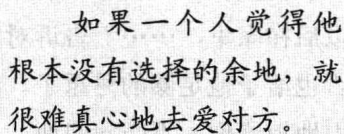 如果一个人觉得他
根本没有选择的余地，就
很难真心地去爱对方。